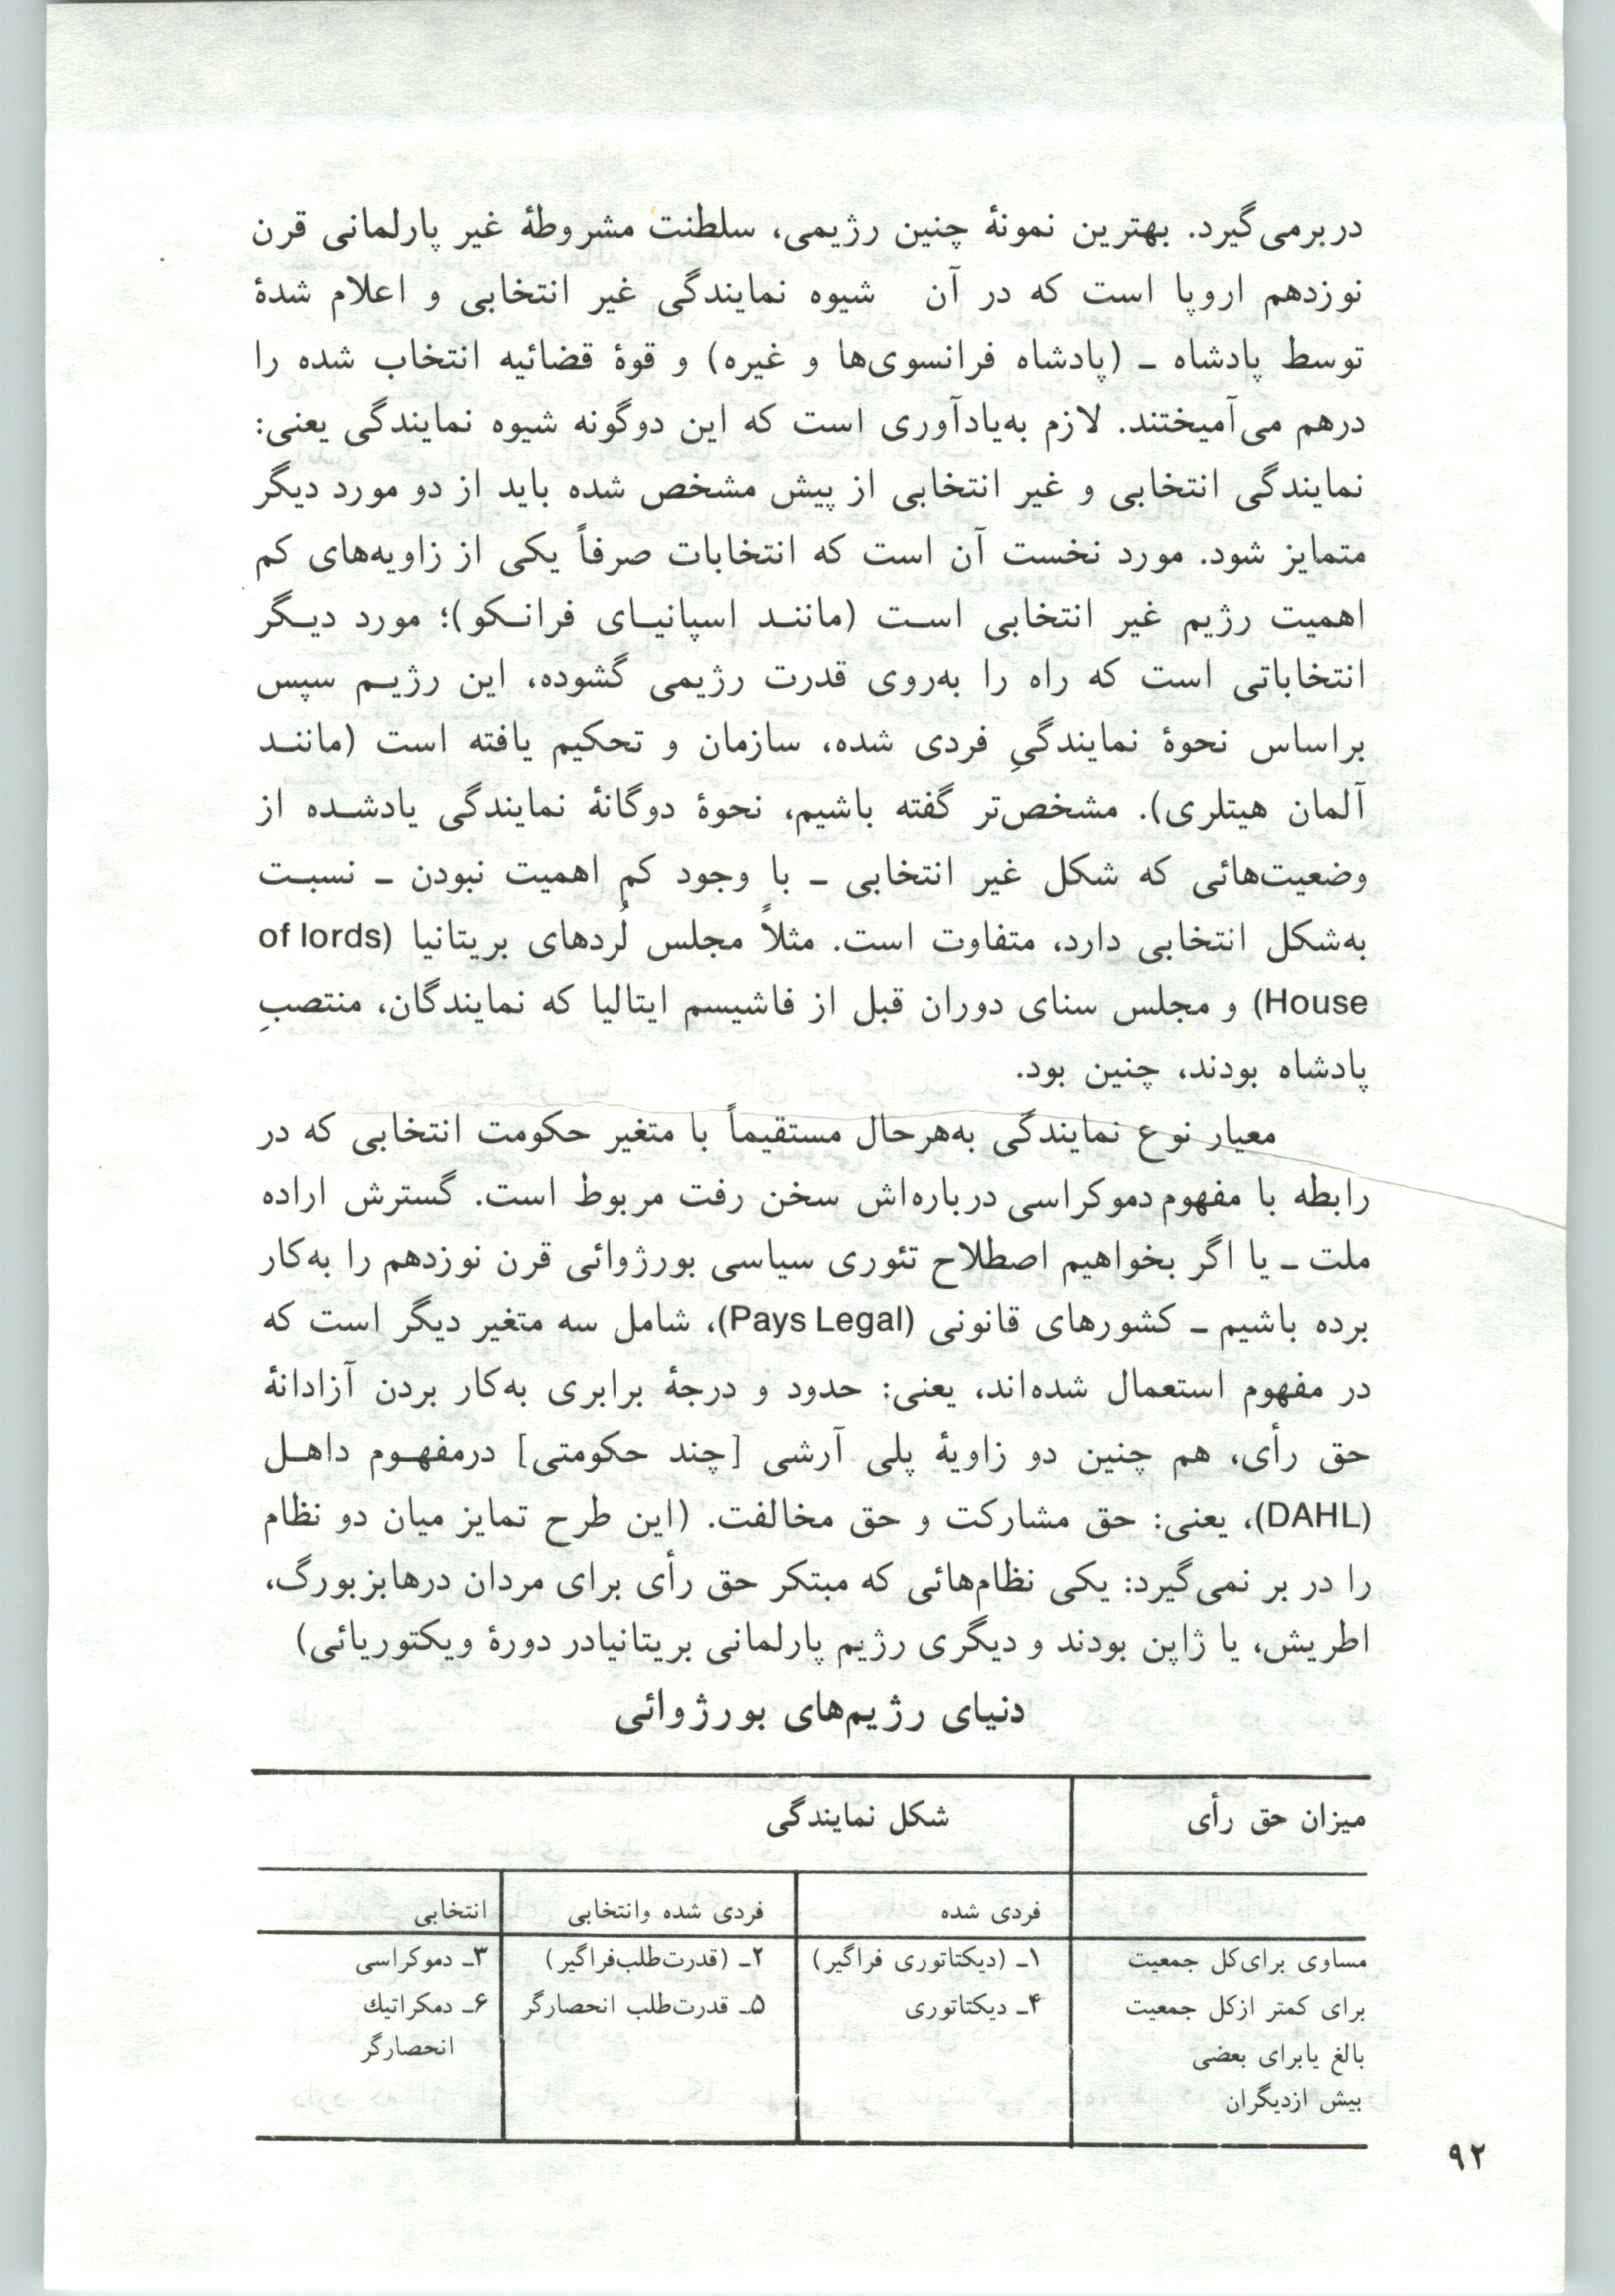 دربرمی‌گیرد. بهترین نمونهٔ چنین رژیمی، سلطنت مشروطهٔ غیر پارلمانی قرن
نوزدهم اروپا است که در آن شیوه نمایندگی غیر انتخابی و اعلام شدهٔ
توسط پادشاه ـ (پادشاه فرانسوی‌ها و غیره) و قوهٔ قضائیه انتخاب شده را
درهم می‌آمیختند. لازم به‌یادآوری است که این دوگونه شیوه نمایندگی یعنی:
نمایندگی انتخابی و غیر انتخابی از پیش مشخص شده باید از دو مورد دیگر
متمایز شود. مورد نخست آن است که انتخابات صرفاً یکی از زاویه‌های کم
اهمیت رژیم غیر انتخابی اسـت (ماننـد اسپانیـای فرانـکو)؛ مورد دیـگر
انتخاباتی است که راه را به‌روی قدرت رژیمی گشوده، این رژیـم سپس
براساس نحوهٔ نمایندگیِ فردی شده، سازمان و تحکیم یافته است (ماننـد
آلمان هیتلری). مشخص‌تر گفته باشیم، نحوهٔ دوگانهٔ نمایندگی یادشـده از
وضعیت‌هائی که شکل غیر انتخابی ـ با وجود کم اهمیت نبودن ـ نسبـت
به‌شکل انتخابی دارد، متفاوت است. مثلاً مجلس لُردهای بریتانیا (of lords
House) و مجلس سنای دوران قبل از فاشیسم ایتالیا که نمایندگان، منتصبِ
پادشاه بودند، چنین بود.
معیار نوع نمایندگی به‌هرحال مستقیماً با متغیر حکومت انتخابی که در
رابطه با مفهوم دموکراسی درباره‌اش سخن رفت مربوط است. گسترش اراده
ملت ـ یا اگر بخواهیم اصطلاح تئوری سیاسی بورژوائی قرن نوزدهم را به‌کار
برده باشیم ـ کشورهای قانونی (Pays Legal)، شامل سه متغیر دیگر است که
در مفهوم استعمال شده‌اند، یعنی: حدود و درجهٔ برابری به‌کار بردن آزادانهٔ
حق رأی، هم چنین دو زاویهٔ پلی آرشی [چند حکومتی] درمفهـوم داهـل
(DAHL)، یعنی: حق مشارکت و حق مخالفت. (این طرح تمایز میان دو نظام
را در بر نمی‌گیرد: یکی نظام‌هائی که مبتکر حق رأی برای مردان درهابزبورگ،
اطریش، یا ژاپن بودند و دیگری رژیم پارلمانی بریتانیادر دورهٔ ویکتوریائی)
دنیای رژیم‌های بورژوائی
میزان حق رأی شکل نمایندگی
فردی شده فردی شده وانتخابی انتخابی
مساوی برای‌کل جمعیت ۱ـ (دیکتاتوری فراگیر) ۲ـ (قدرت‌طلب‌فراگیر) ۳ـ دموکراسی
برای کمتر ازکل جمعیت ۴ـ دیکتاتوری ۵ـ قدرت‌طلب انحصارگر ۶ـ دمکراتیك
بالغ یابرای بعضی انحصارگر
بیش ازدیگران
۹۲